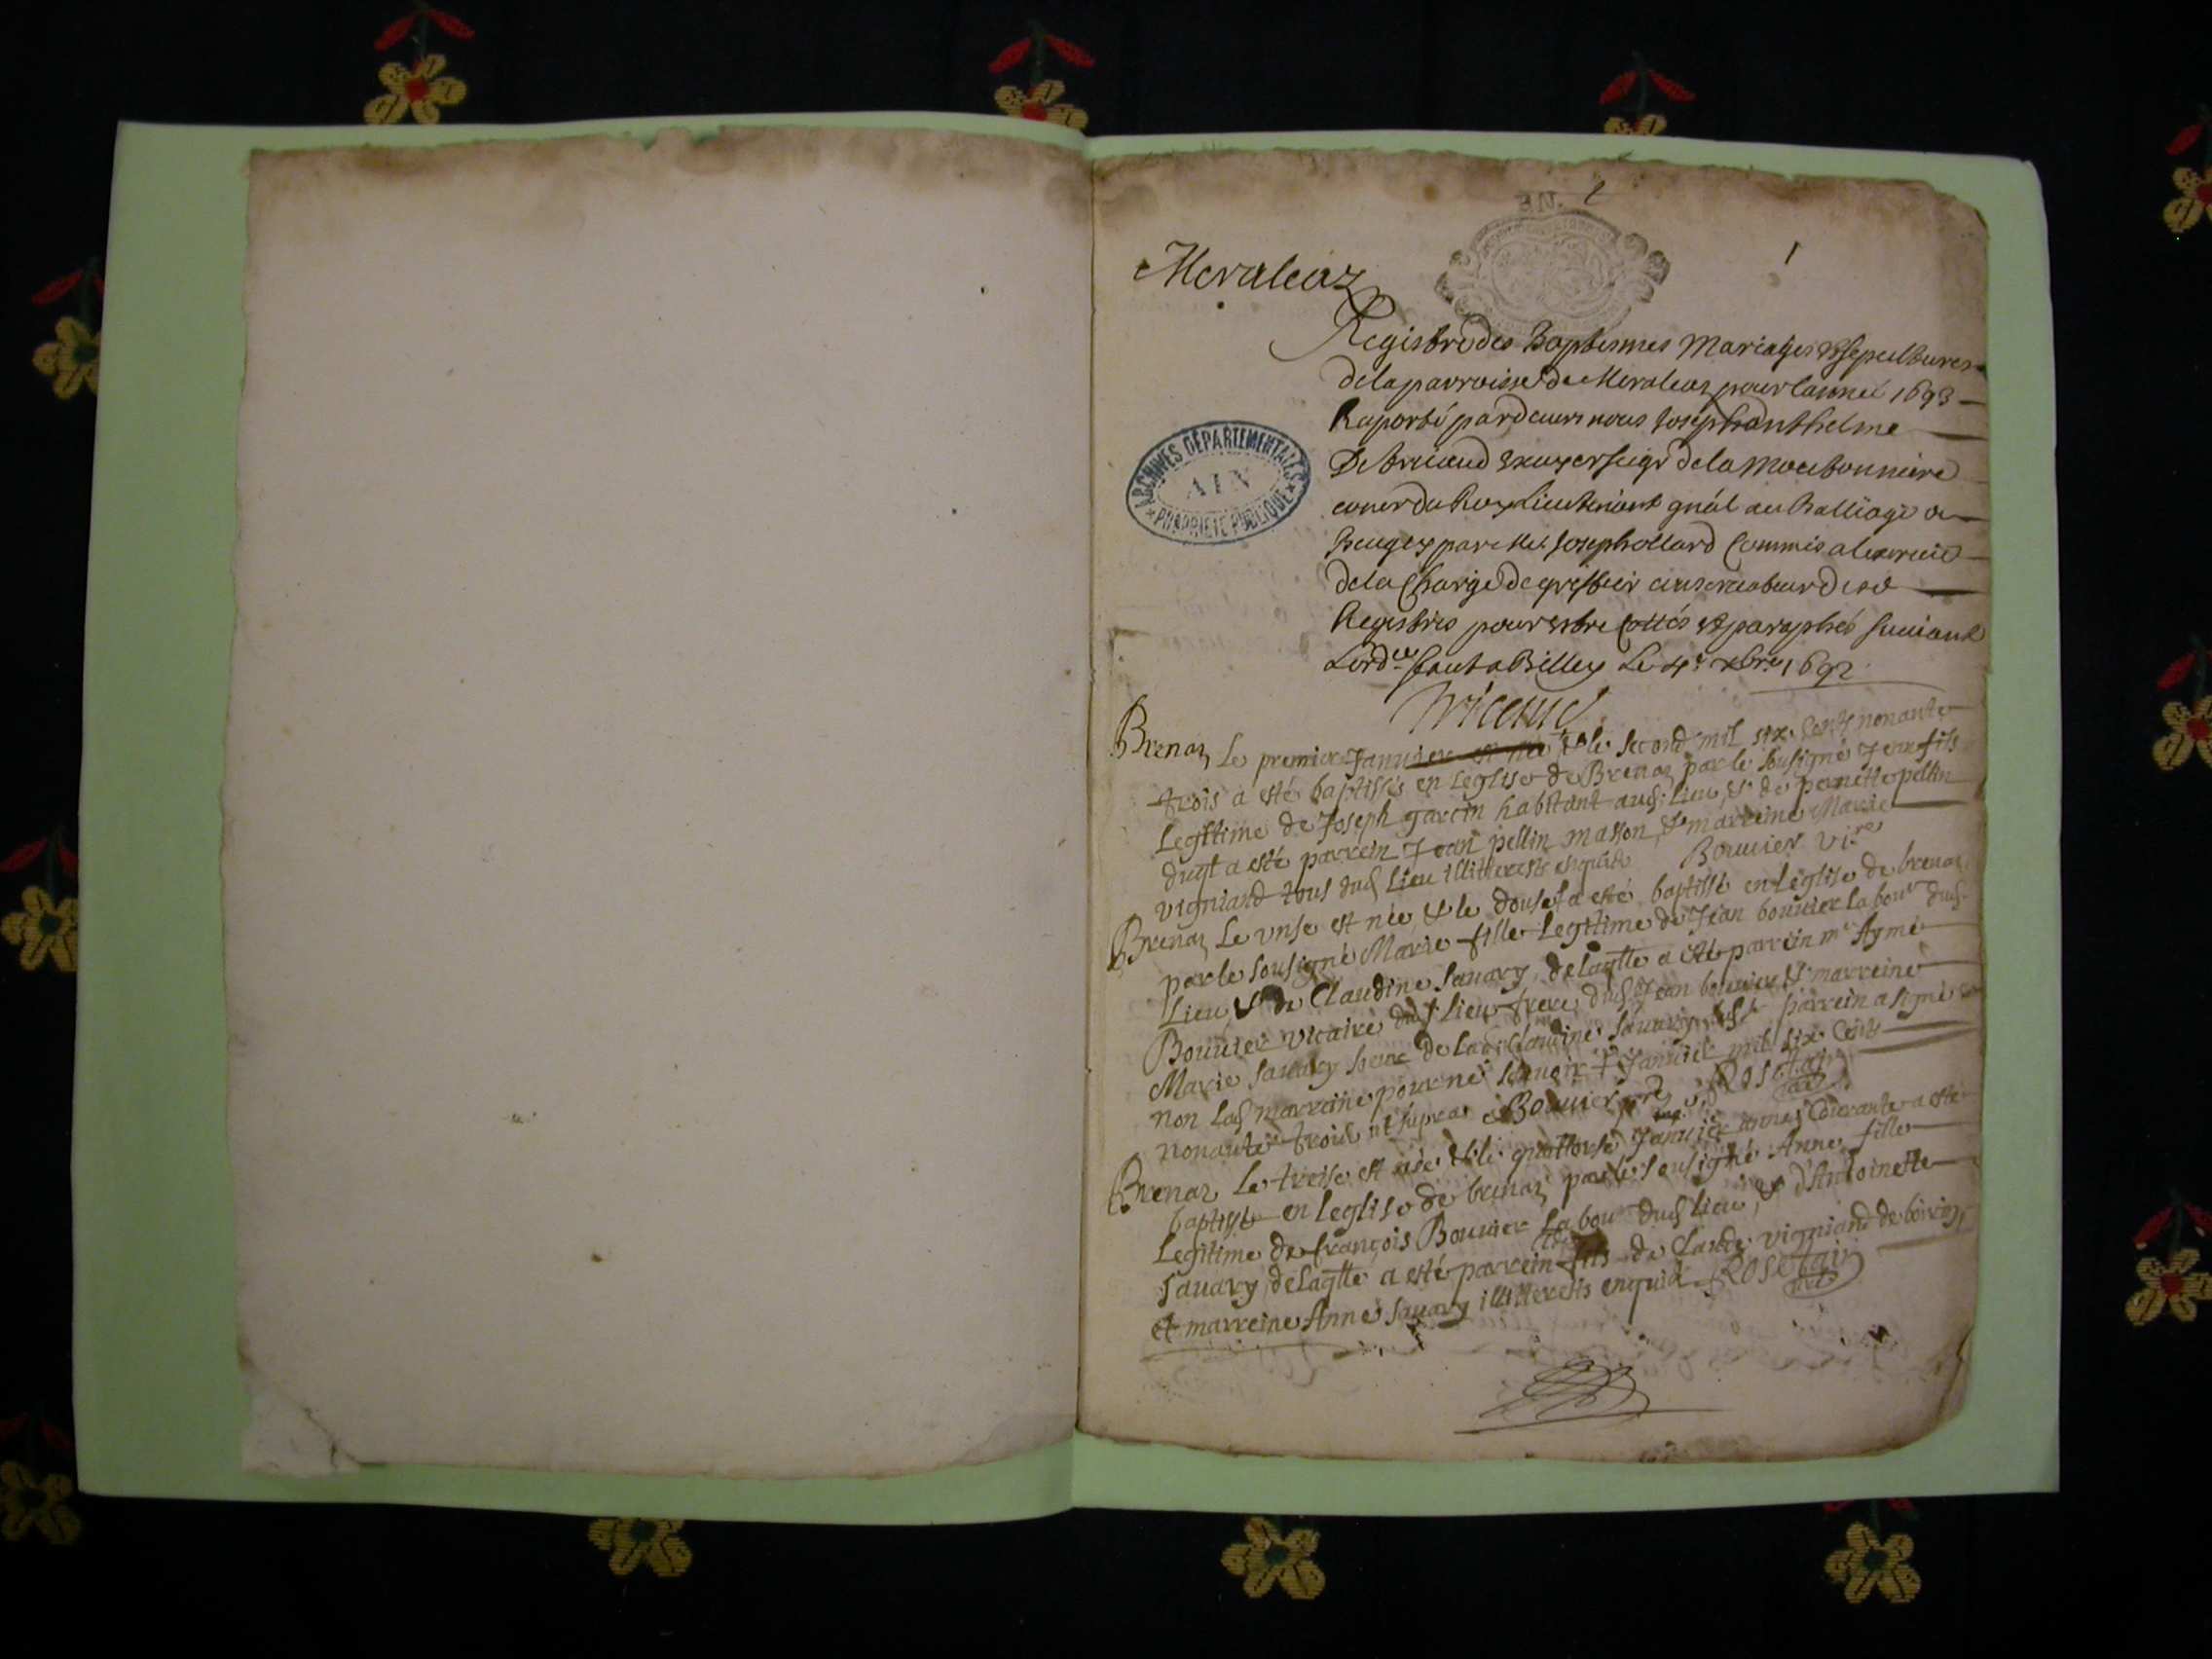 1
Meraleaz
Registre des Baptesmes Mariages & sepultures
de la parroisse de Meraleaz pour lannee 1693
Raporté pardeuers nous Joseph Anthelme
De Briaud Escuyer seigr de la Moubonniere
coner du Roy Lieutenant gnâl au Balliage de
Beugey par Me Joseph ollard Commis a lexercice
de la Charge de greffier conseruateur desd
Registres pour estre Cottés et paraphés suiuant
Lord.ce faict a Billey Le 4e xbre 1692
ARCHIVES DEPARTEMENTALES
AIN
PROPRIETE PUBLIQUE
Brenaz Le premier Januier est né & le second mil six cents nonante
trois a esté baptisés en Leglise de Brenaz par le sousigné Jean fils
Legitime de Joseph garcin habitant aud. Lieu, & de pernette pellin
duqt a esté parrein Jean pellin masson, & marreine Marie
vigniand tous dud Lieu illitterests enquis Bouuier vire
Brenaz Le vnse est née & le douse a esté baptissé en Leglise de brenaz
par le sousigné Marie fille Legitime de Jean bouuier labour dud.
Lieu & de Claudine sauary, de laqtte a esté parrein mr Aymé
Bouuier vicaire dud Lieu frere dud Jean bouuier & marreine
Marie sauary soeur de lad Claudine sauary parrein a signé
non lad marreine pour ne sçauoir Januier mil six cents
nonante trois ut supra Bouuier Rosetain
Brenaz Le treise est née & le quattorse Januier année Courante a esté
baptissé en Leglise de brenaz par le sousigné Anne fille
Legitime de françois Bouuier labour dud lieu, & d'Antoinette
sauary de laqtte a esté parrein fils de Claude vigniand de boiron
et marreine Anne sauary illitterests enquis Rosetain